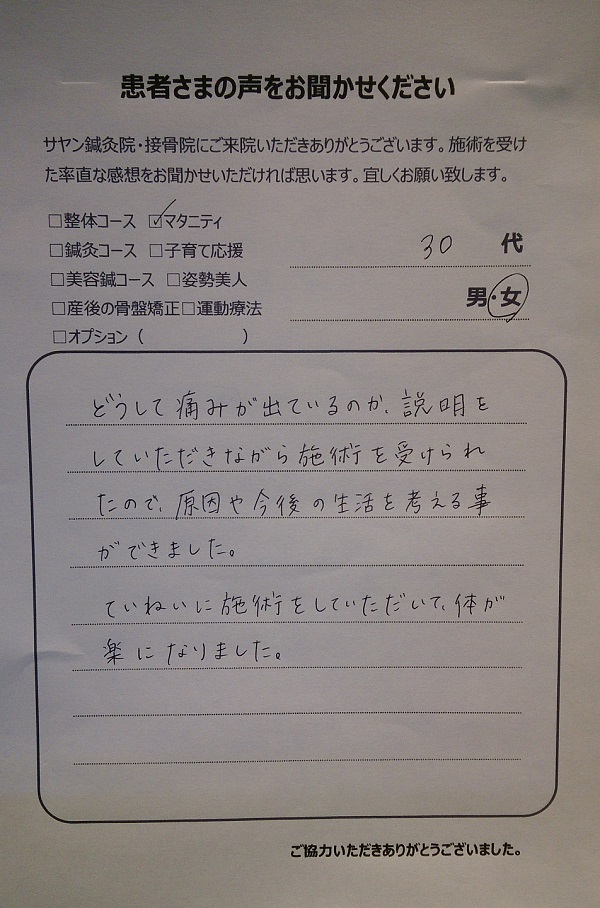 患者さまの声をお聞かせください
サヤン鍼灸院・接骨院にご来院いただきありがとうございます。施術を受け
た率直な感想をお聞かせいただければ思います。宜しくお願い致します。
□整体コース ☑マタニティ
□鍼灸コース □子育て応援
30 代
□美容鍼コース □姿勢美人
男・女
□産後の骨盤矯正□運動療法
□オプション（ ）
どうして痛みが出ているのか、説明を
していただきながら施術を受けられ
たので、原因や今後の生活を考える事
ができました。
ていねいに施術をしていただいて、体が
楽になりました。
ご協力いただきありがとうございました。